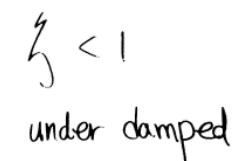 ζ < 1
under damped